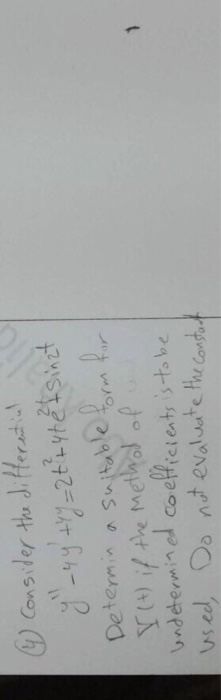 (4) Consider the differential
y'' - 4y' + 4y = 2t² + 4te²ᵗ + sin2t
Determin a suitable form for
Y(t) if the method of
undetermined coefficients is to be
used, Do not evaluate the constant